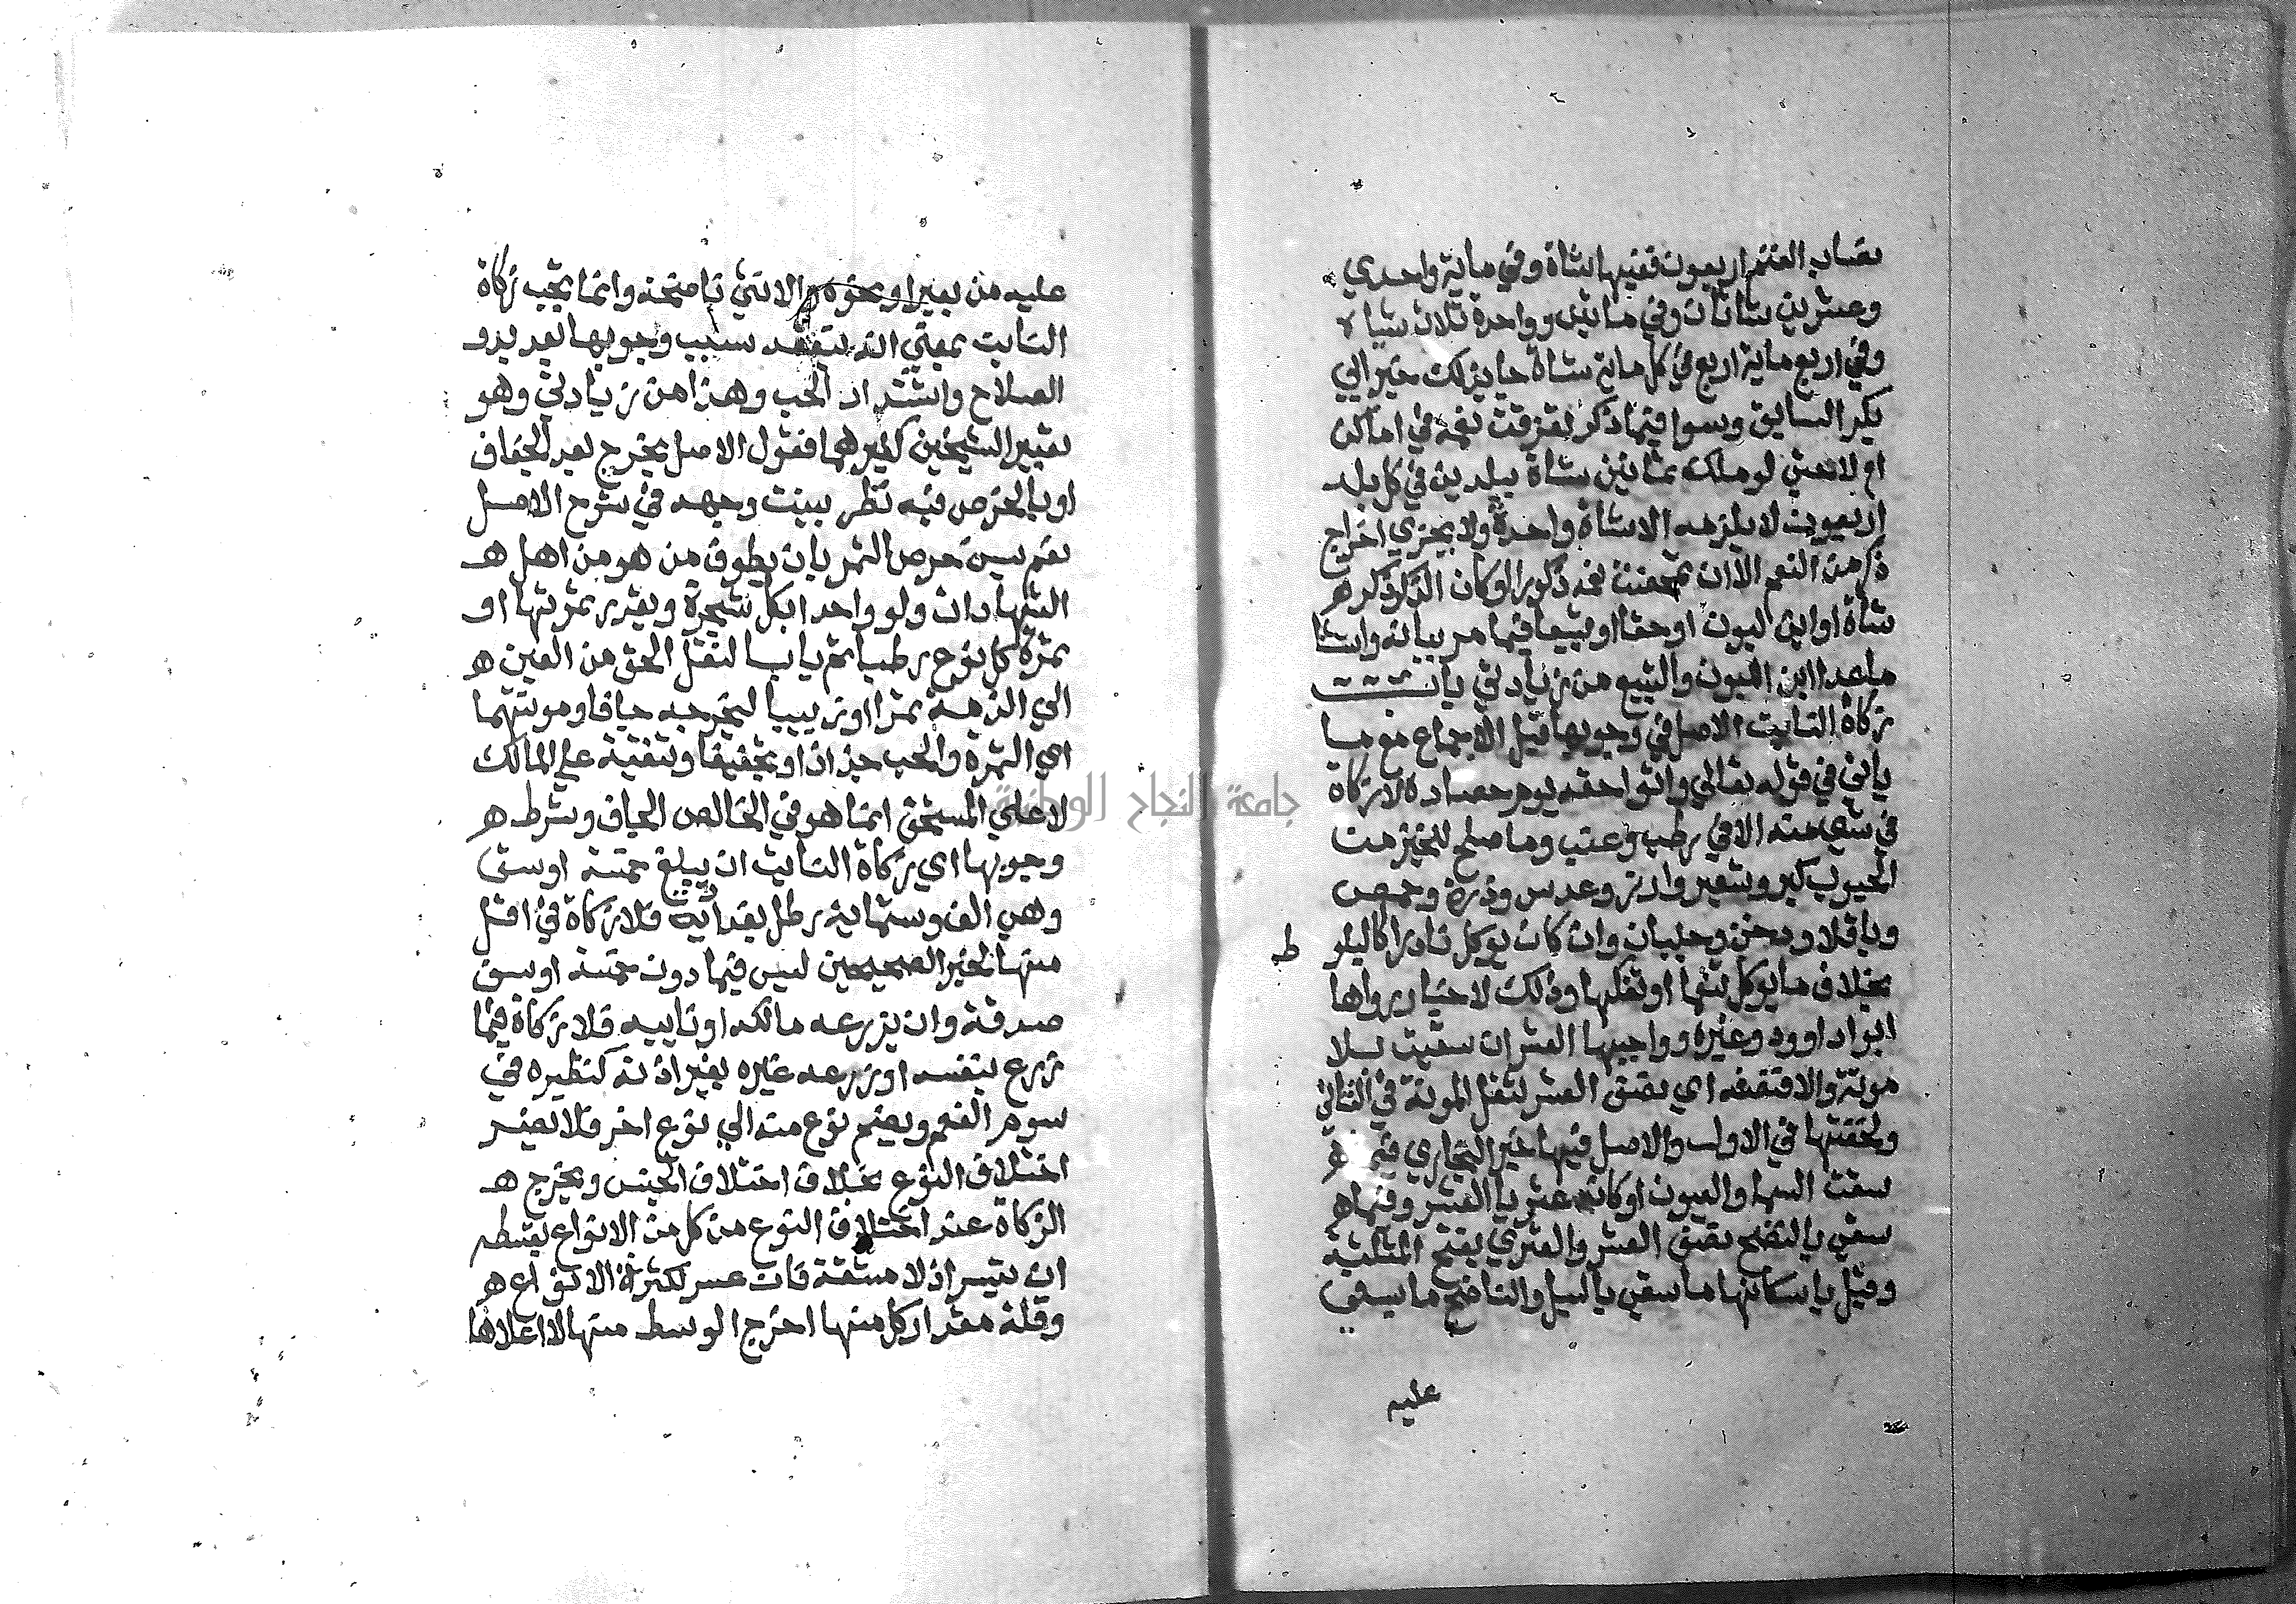 نصاب الغنم اربعون ففيها شاة وفي ماية واحدي
وعشرين شاتان وفي ماتين وواحدة ثلاث شياه
وفي اربع ماية اربع في كل ماية شاة جا بذلك خبر ابي
بكر السابق وسوا فيما ذكر تفرقت نعمه في اماكن
ام لا فمن لو ملك ثمانين شاة ببلدين في كل بلد
اربعون لا يلزمه الا شاة واحدة ولا يجزي اخراج
ذكر من النعم الا ان تمحضت نعمه ذكورا او كان الذكر ه
شاة او ابن لبون او حقا او تبيعا فيما مر بيانه واستثنا
ما عدا ابن اللبون والتبيع من زيادتي باب
زكاة النابت الاصل في وجوبها قبل الاجماع مع ما
ياتي في قوله تعالي واتوا حقه يوم حصاده لا زكاة
في شي منه الا في رطب وعنب وما صلح للخبز من
الحبوب كبر وشعير وارز وعدس وذرة وحمص
وباقلا ودخن وجلبان وان كان يوكل نادرا كالبلو ط
بخلاف ما يوكل تنعما او تفكها وذلك لاخبار رواها
ابو داوود وغيره وواجبها العشر ان سقيت بلا
مونة والا فنصفه اي نصف العشر لثقل المونة في الثاني
ولخفتها في الاول والاصل فيها خبر البخاري فيما
سقت السما والعيون او كان عثريا العشر وفيما ه
سقي بالنضح نصف العشر والعثري بفتح المثلثة
وقيل باسكانها ما سقي بالسيل والناضح ما يسقي
عليه
عليه من بعير او نحوه والانثي ناضحة وانما تجب زكاة
النابت بمعني انه ينعقد سبب وجوبها بعد بدو
الصلاح واشتداد الحب وهذا من زيادتي وهو
تعبير الشيخين كغيرهما فقول الاصل يخرج بعد الجفاف
او بالخرص فيه نظر بينت وجهه في شرح الاصل
نعم يسن خرص الثمر بان يطوف من هو من اهل هـ
الشهادات ولو واحدا بكل شجرة ويقدر ثمرتها او
ثمرة كل نوع رطبا ثم يابسا لنقل الحق من العين هـ
الي الذمة تمرا او زبيبا ليخرجه جافا ومونتهما
اي الثمرة والحب جذاذا وتجفيفا وتنقية علي المالك
لا علي المستحق انما هو في الخالص الجاف وشرط هـ
وجوبها اي زكاة النابت ان يبلغ خمسة اوسق
وهي الف وستماية رطل بغدادية فلا زكاة في اقل
منها لخبر الصحيحين ليس فيما دون خمسة اوسق
صدقة وان يزرعه مالكه او نايبه فلا زكاة فيما
زرع بنفسه او زرعه غيره بغير اذنه كنظيره في
سوم الغنم ويضم نوع منه الي نوع اخر فلا يضر
اختلاف النوع بخلاف اختلاف الجنس ويخرج هـ
الزكاة عند اختلاف النوع من كل من الانواع بقسطه
ان تيسر اذ لا مشقة فان عسر لكثرة الانواع هـ
وقلة مقدار كل منها اخرج الوسط منها لا اعلاها
جامعة النجاح الوطنية